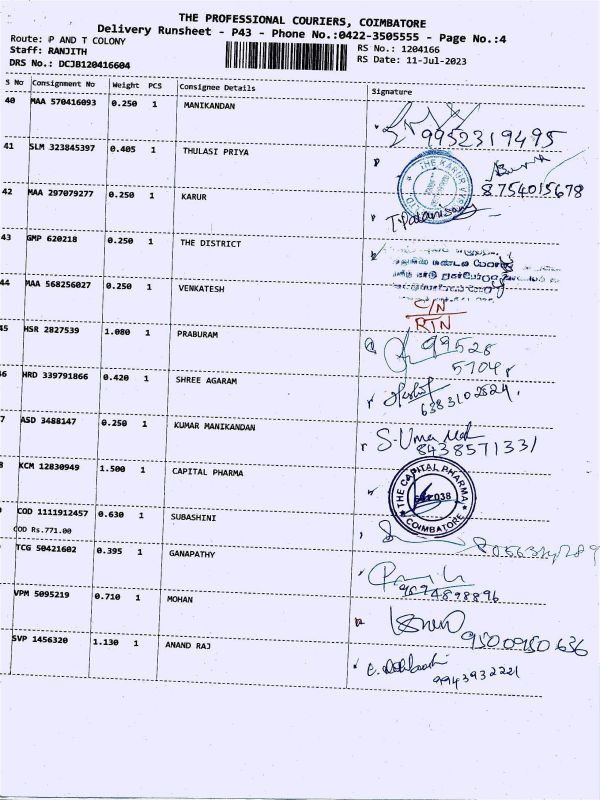 THE PROFESSIONAL COURIERS, COIMBATORE
Delivery Runsheet - P43 - Phone No.:0422-3505555 - Page No.:4
Route: P AND T COLONY
Staff: RANJITH RS No.: 1204166
DRS No.: DCJB120416604 RS Date: 11-Jul-2023
S No Consignment No Weight PCS Consignee Details Signature
40 MAA 570416093 0.250 1 MANIKANDAN
9952319495
41 SLM 323845397 0.405 1 THULASI PRIYA
8754015678
42 MAA 297079277 0.250 1 KARUR
THE KARUR
43 GMP 620218 0.250 1 THE DISTRICT
44 MAA 568256027 0.250 1 VENKATESH
C/N
RTN
45 HSR 2827539 1.080 1 PRABURAM
99528
46 HRD 339791866 0.420 1 SHREE AGARAM
6383102524
7 ASD 3488147 0.250 1 KUMAR MANIKANDAN
S-Uma
8438571331
8 KCM 12830949 1.500 1 CAPITAL PHARMA
THE CAPITAL PHARMA
COIMBATORE
COD 1111912457 0.630 1 SUBASHINI
COD Rs.771.00
TCG 50421602 0.395 1 GANAPATHY
9894898896
VPM 5095219 0.710 1 MOHAN
9500950636
SVP 1456320 1.130 1 ANAND RAJ
9943932221